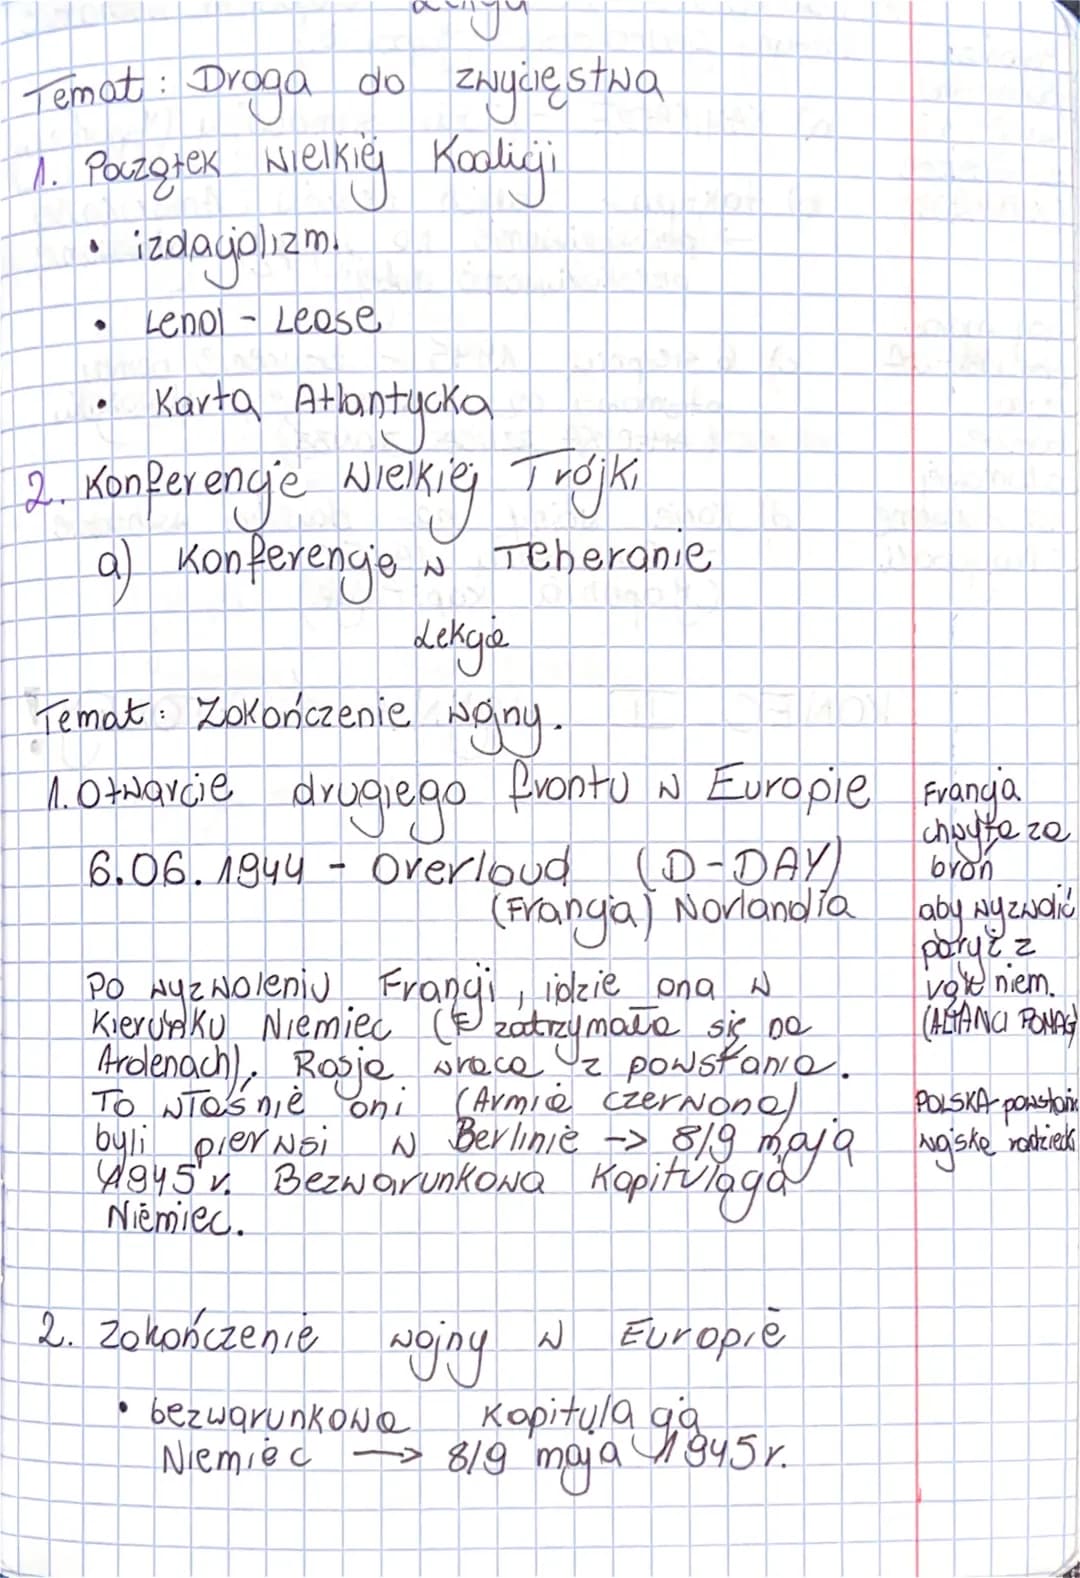 Temat: Droga do zwycięstwa
1. Początek Wielkiej Koalicji
• izolacjolizm.
• Lend - Lease
• Karta Atlantycka
2. Konferencje Wielkiej Trójki
a) Konferencje w Teheranie
Lekcja
Temat: Zakończenie wojny.
1. Otwarcie drugiego frontu w Europie
6.06.1944 - Overloud (D-DAY)
(Francja) Norlandia
Po wyzwoleniu Francji, idzie ona w
kierunku Niemiec ( zatrzymała się na
Ardenach). Rosja wraca z powstania.
To właśnie oni (Armia Czerwona)
byli pierwsi w Berlinie -> 8/9 maja
1945 r. Bezwarunkowa kapitulacja
Niemiec.
Francja
chwyta za
broń
aby wyzwolić
paryż z
niem.
(ALIANCI POMAG
POLSKA-powstań
wojska radzieck
2. Zakończenie wojny w Europie
• bezwarunkowa kapitulacja
Niemiec -> 8/9 maja 1945r.